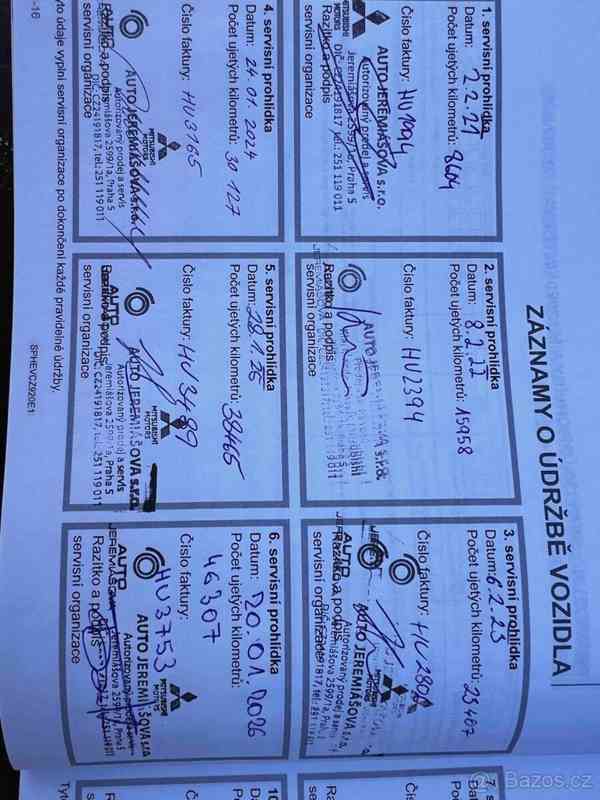 ZÁZNAMY O ÚDRŽBĚ VOZIDLA
1. servisní prohlídka
Datum: 2.2.21
Počet ujetých kilometrů: 8604
Číslo faktury: HU1994
MITSUBISHI MOTORS
AUTO JEREMIÁŠOVA s.r.o.
Autorizovaný prodej a servis
Jeremiášova 2599/1a, Praha 5
DIČ: CZ24191817, tel.: 251 119 011
Razítko a podpis
servisní organizace
2. servisní prohlídka
Datum: 8.2.22
Počet ujetých kilometrů: 15958
Číslo faktury: HU2394
Razítko a podpis
servisní organizace
3. servisní prohlídka
Datum: 6.2.23
Počet ujetých kilometrů: 23407
Číslo faktury:
Razítko a podpis
servisní organizace
4. servisní prohlídka
Datum: 24.01.2024
Počet ujetých kilometrů: 30 127
Číslo faktury: HU3165
MITSUBISHI MOTORS
AUTO JEREMIÁŠOVA s.r.o.
Autorizovaný prodej a servis
Jeremiášova 2599/1a, Praha 5
DIČ: CZ24191817, tel.: 251 119 011
Razítko a podpis
servisní organizace
5. servisní prohlídka
Datum: 28.1.25
Počet ujetých kilometrů: 38465
Číslo faktury: HU3489
MITSUBISHI MOTORS
AUTO JEREMIÁŠOVA s.r.o.
Autorizovaný prodej a servis
Jeremiášova 2599/1a, Praha 5
DIČ: CZ24191817, tel.: 251 119 011
AUTO
Razítko a podpis
servisní organizace
6. servisní prohlídka
Datum: 20.01.2026
Počet ujetých kilometrů:
46307
Číslo faktury:
HU3753
MITSUBISHI MOTORS
AUTO JEREMIÁŠOVA s.r.o.
Autorizovaný prodej a servis
Jeremiášova 2599/1a, Praha 5
AUTO
JEREMIÁŠOVA
Razítko a podpis
servisní organizace
7. s
Da
Po
Čís
Ra
ser
10
Da
Po
Čís
Ra
ser
yto údaje vyplní servisní organizace po dokončení každé pravidelné údržby.
Tyt
-16
SPHEVCZ920E1
Bazos.cz